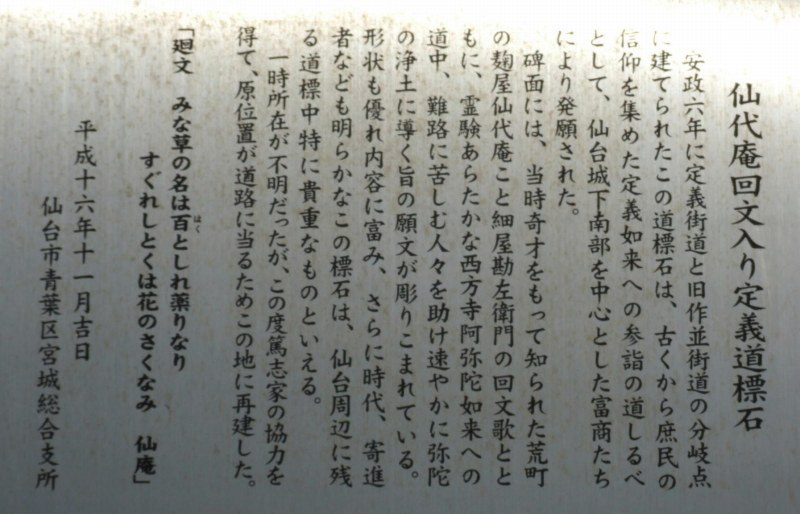 仙代庵回文入り定義道標石
安政六年に定義街道と旧作並街道の分岐点
に建てられたこの道標石は、古くから庶民の
信仰を集めた定義如来への参詣の道しるべ
として、仙台城下南部を中心とした富商たち
により発願された。
碑面には、当時奇才をもって知られた荒町
の麹屋仙代庵こと細屋勘左衛門の回文歌とと
もに、霊験あらたかな西方寺阿弥陀如来への
道中、難路に苦しむ人々を助け速やかに弥陀
の浄土に導く旨の願文が彫りこまれている。
形状も優れ内容に富み、さらに時代、寄進
者なども明らかなこの標石は、仙台周辺に残
る道標中特に貴重なものといえる。
一時所在が不明だったが、この度篤志家の協力を
得て、原位置が道路に当るためこの地に再建した。
「廻文 みな草の名は百としれ薬りなり
はく
すぐれしとくは花のさくなみ 仙庵」
平成十六年十一月吉日
仙台市青葉区宮城総合支所